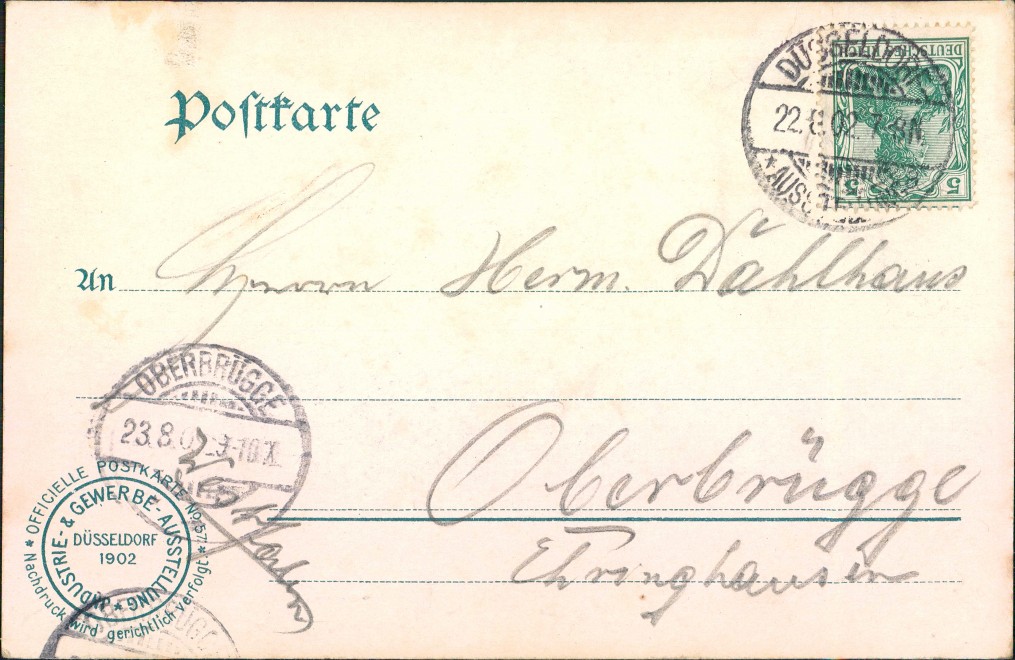 Postkarte
DÜSSELDORF
22.8.02. 7-8N.
* AUSSTELLUNG
DEUTSCHES REICH
5 5
An Herrn Herm. Dahlhaus
OBERBRÜGGE
23.8.0 9-10V.
Oberbrügge
Westfalen
Ehringhausen
* OFFICIELLE POSTKARTE No. 57 *
INDUSTRIE- & GEWERBE-AUSSTELLUNG *
DÜSSELDORF
1902
Nachdruck wird gerichtlich verfolgt.